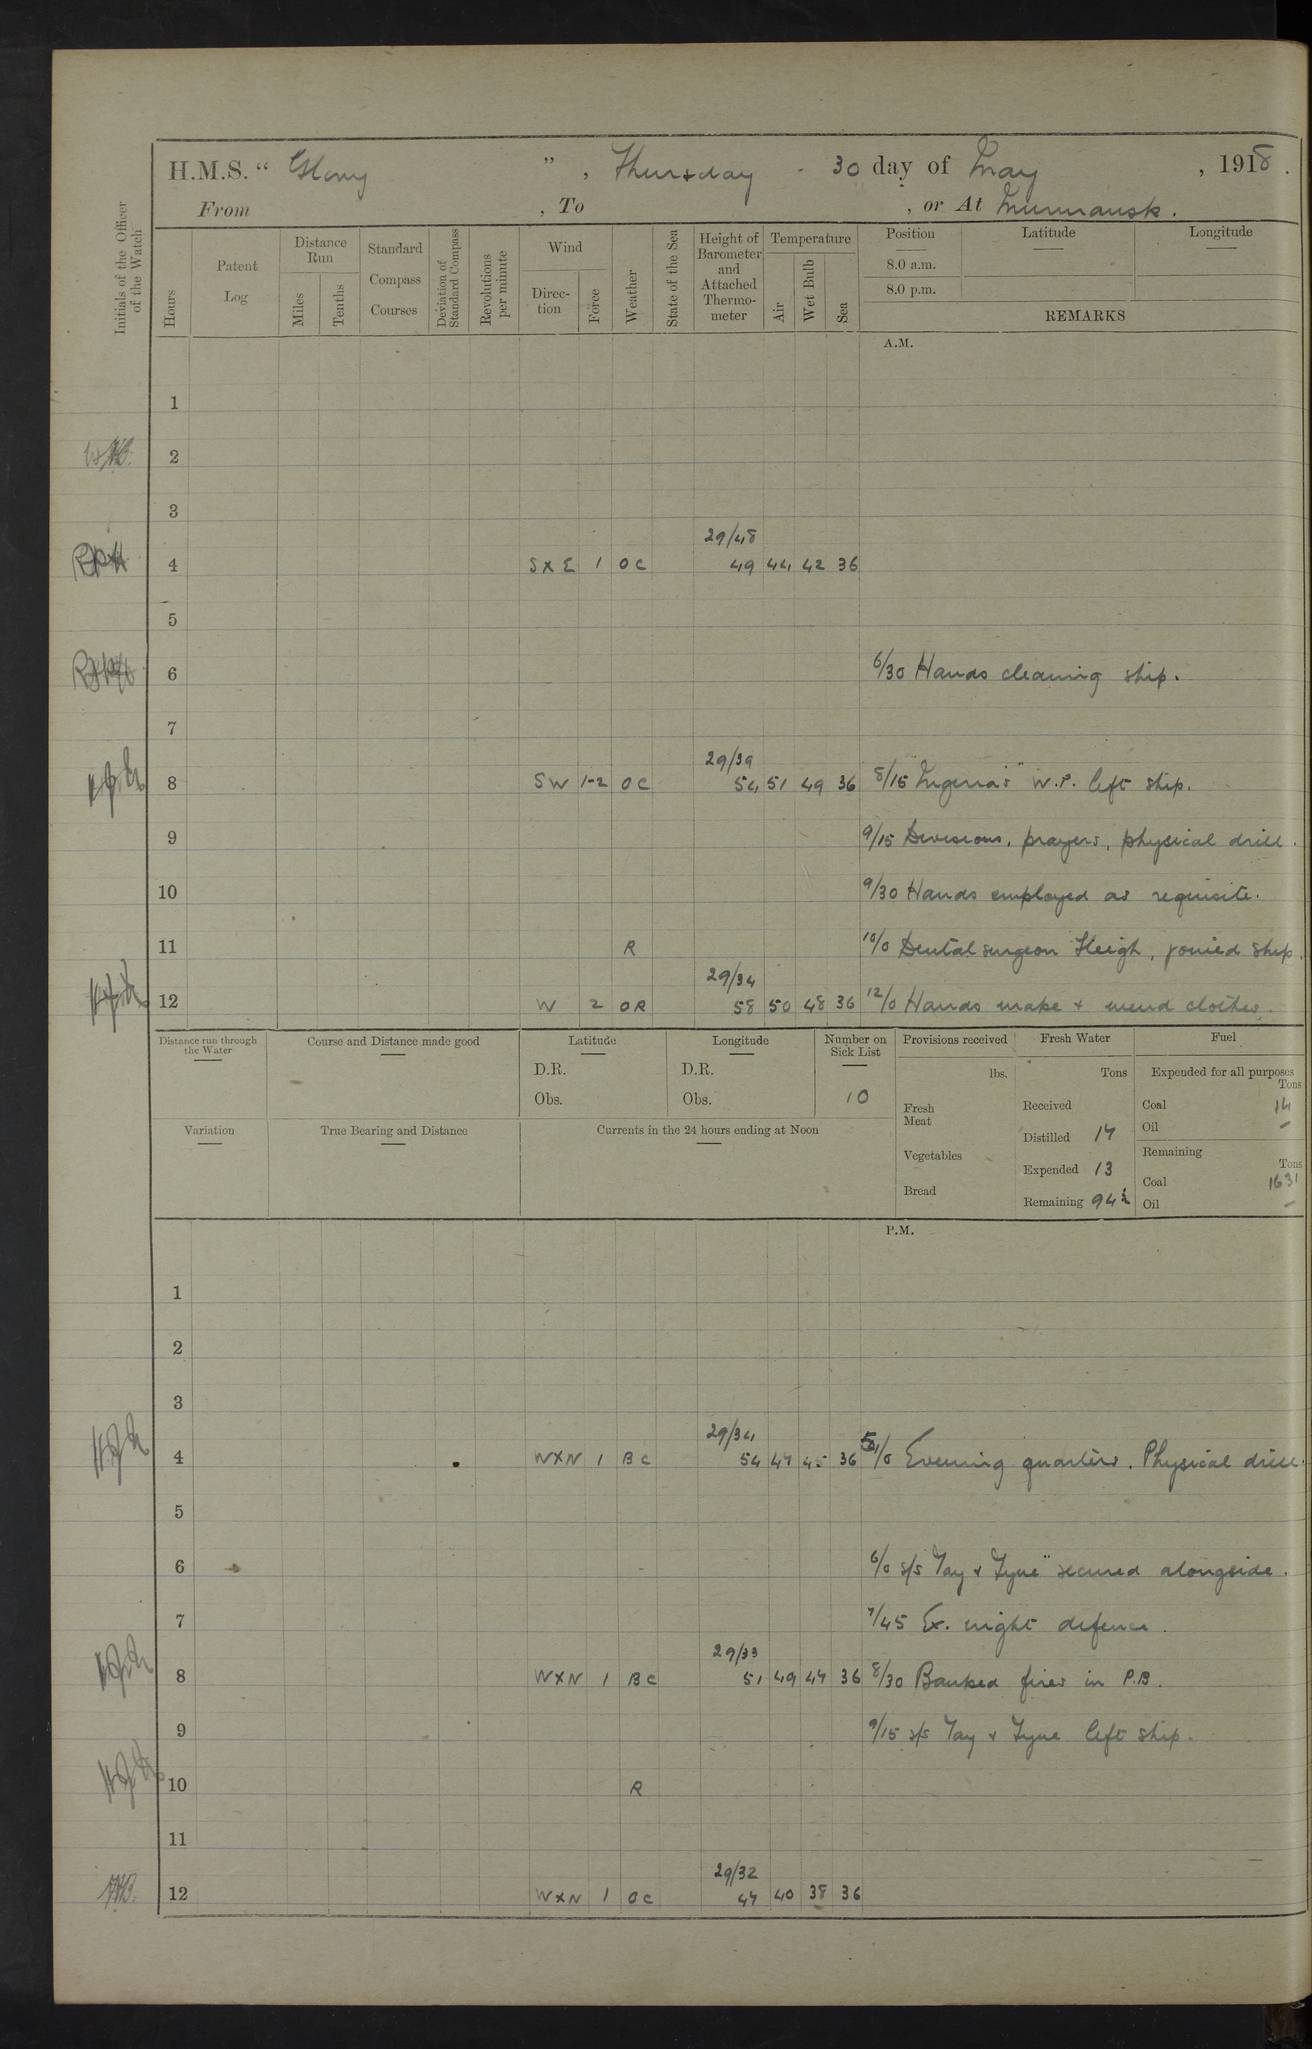 H.M.S. “ Glory ” , Thursday - 30 day of May , 1918 .
From , To , or At Murmansk .
Initials of the Officer of the Watch
Hours
Patent Log
Distance Run
Miles
Tenths
Standard Compass Courses
Deviation of Standard Compass
Revolutions per minute
Wind
Direc-tion
Force
Weather
State of the Sea
Height of Barometer and Attached Thermo-meter
Temperature
Air
Wet Bulb
Sea
Position
Latitude
Longitude
8.0 a.m.
8.0 p.m.
REMARKS
A.M.
1
2
3
29/48
4 S X E 1 OC 49 44 42 36
5
6 6/30 Hands cleaning ship.
7
29/39
8 SW 1-2 OC 54 51 49 36 8/15 W.P. left ship.
9 9/15 Divisions, prayers, physical drill.
10 9/30 Hands employed as requisite.
11 R 10/0 Dental surgeon joined ship.
29/34
12 W 2 OR 58 50 48 36 12/0 Hands make + mend clothes.
Distance run through the Water
Course and Distance made good
Latitude
D.R.
Obs.
Longitude
D.R.
Obs.
Number on Sick List
10
Variation
True Bearing and Distance
Currents in the 24 hours ending at Noon
Provisions received
lbs.
Fresh Meat
Vegetables
Bread
Fresh Water
Tons
Received
Distilled 17
Expended 13
Remaining 94½
Fuel
Expended for all purposes
Tons
Coal 14
Oil –
Remaining
Tons
Coal 1631
Oil –
P.M.
1
2
3
29/34
4 WXN 1 BC 54 47 45 36 5/0 Evening quarters. Physical drill.
5
6 6/0 s/s Tay + Tyne" secured alongside.
7 7/45 Ex. night defence.
29/33
8 WXN 1 BC 51 49 47 36 8/30 Banked fires in P.B.
9 9/15 s/s Tay + Tyne left ship.
10 R
11
29/32
12 WXN 1 OC 47 40 38 36